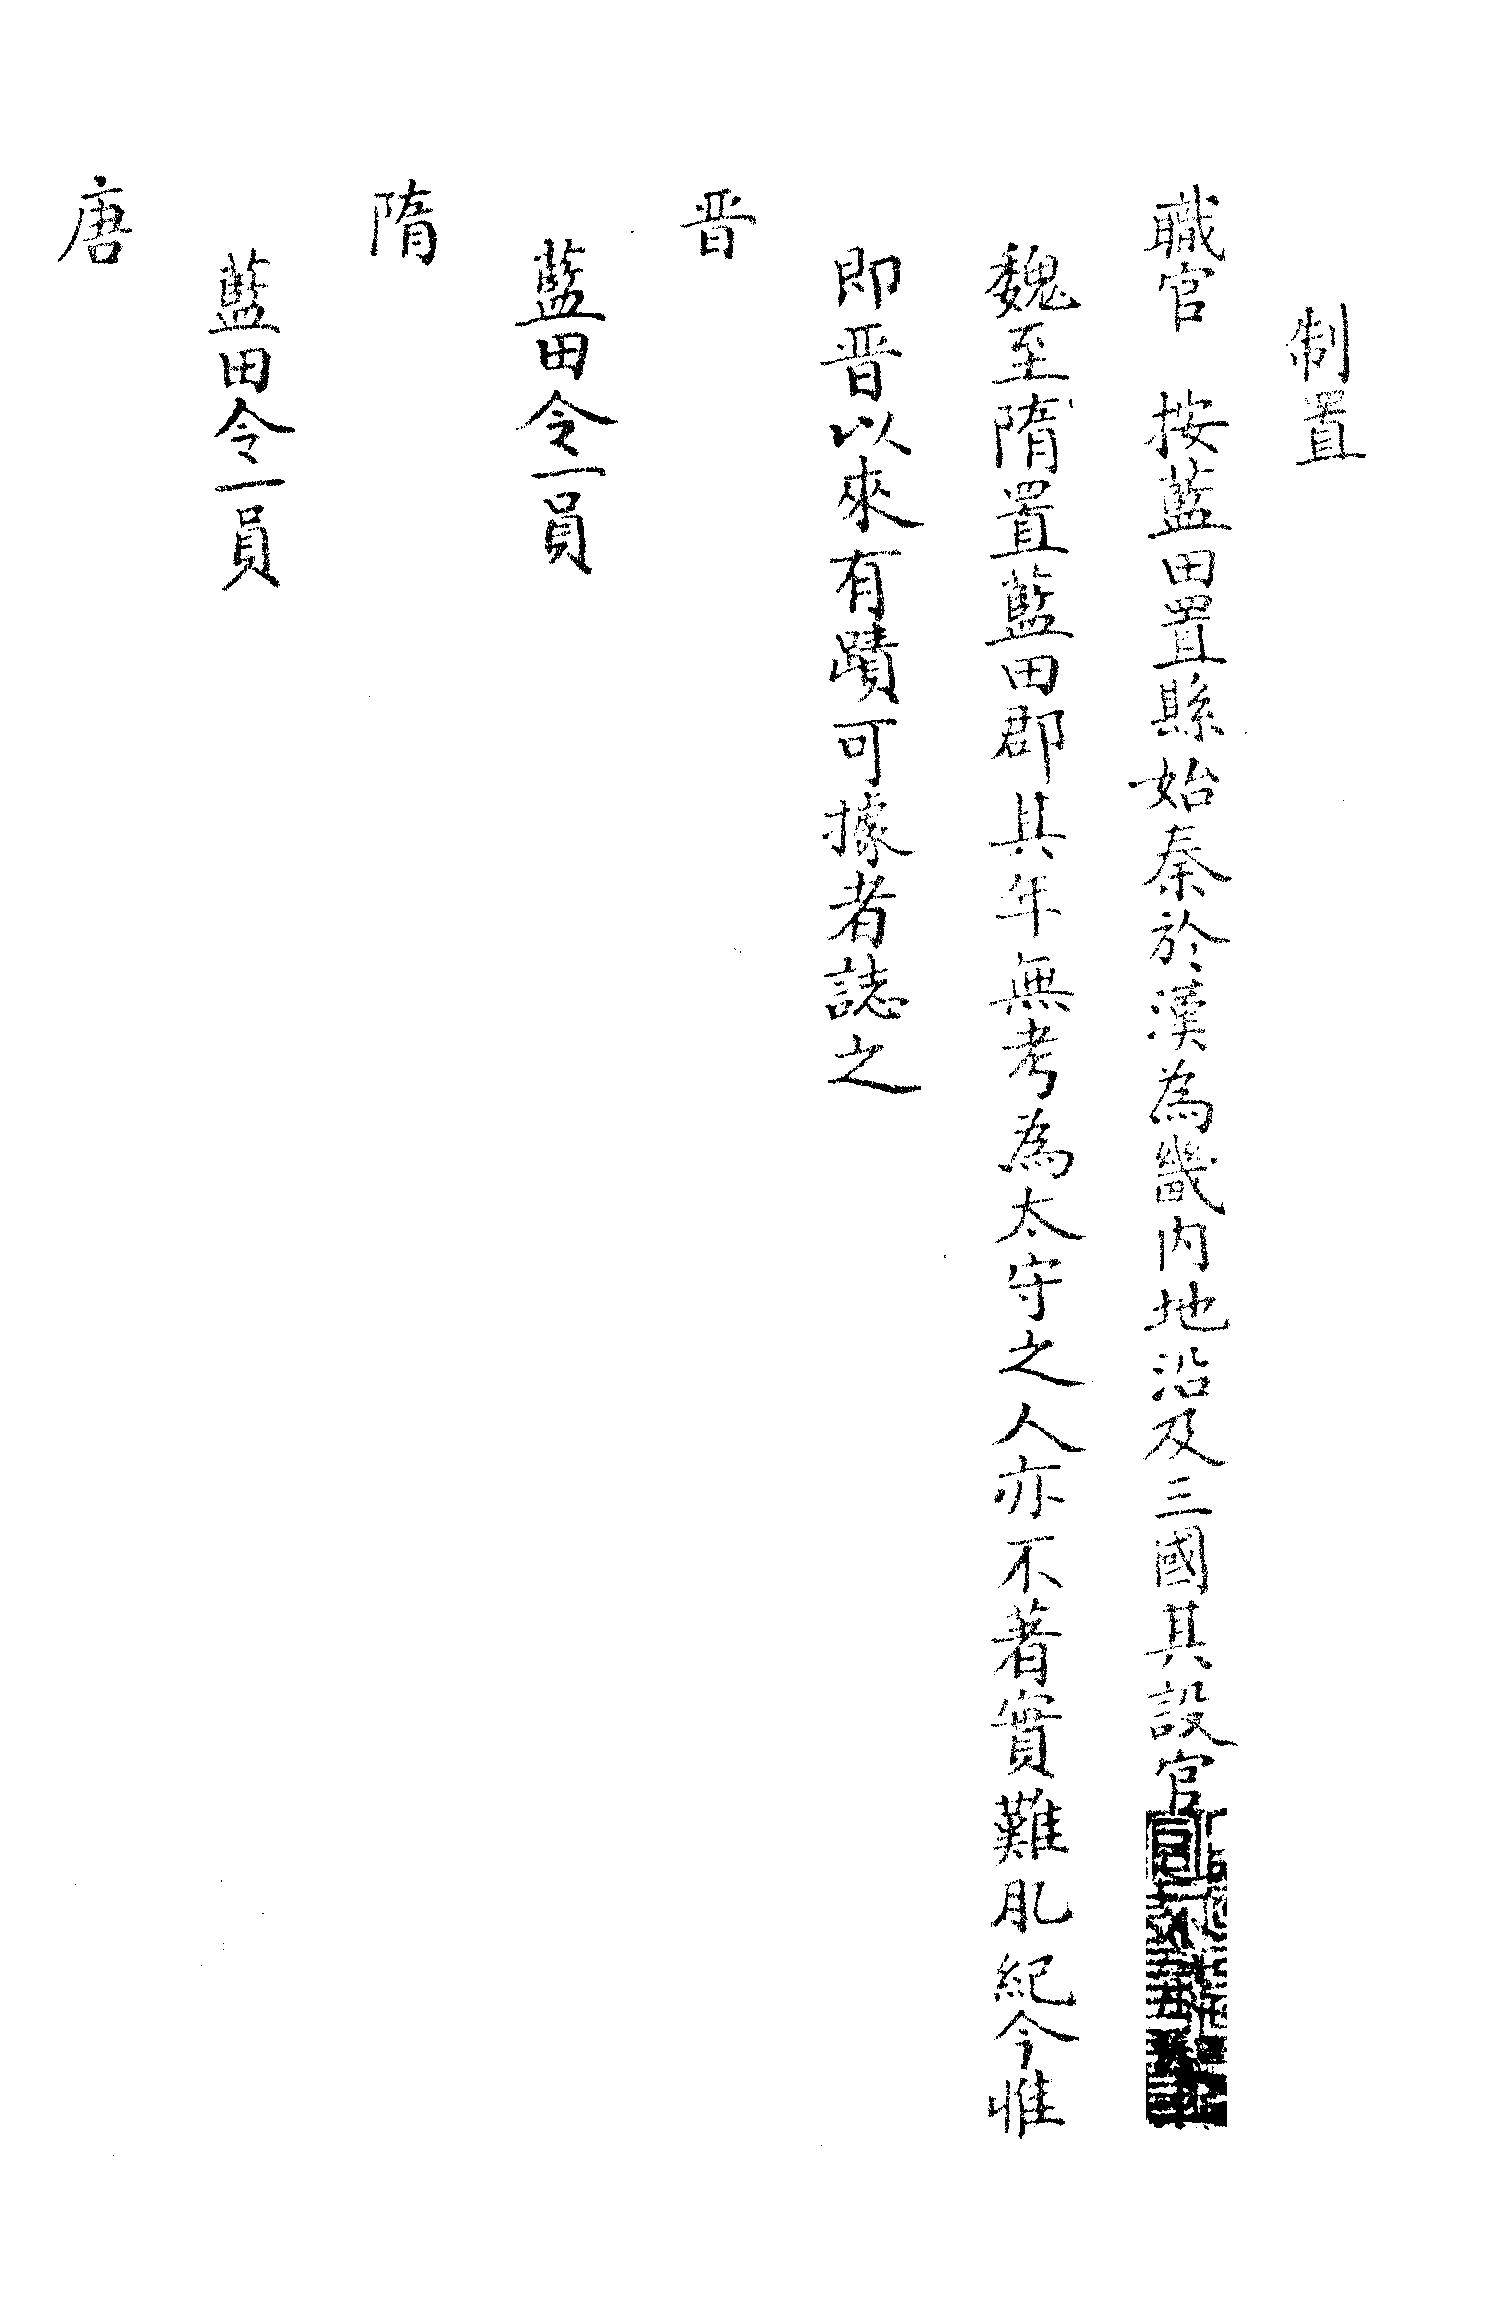 制置
職官　按藍田置縣始秦於漢為畿內地沿及三國其設官
魏至隋置藍田郡其年無考為太守之人亦不著實難肊紀今惟
即晋以來有蹟可據者誌之
晋
藍田令一員
隋
藍田令一員
唐